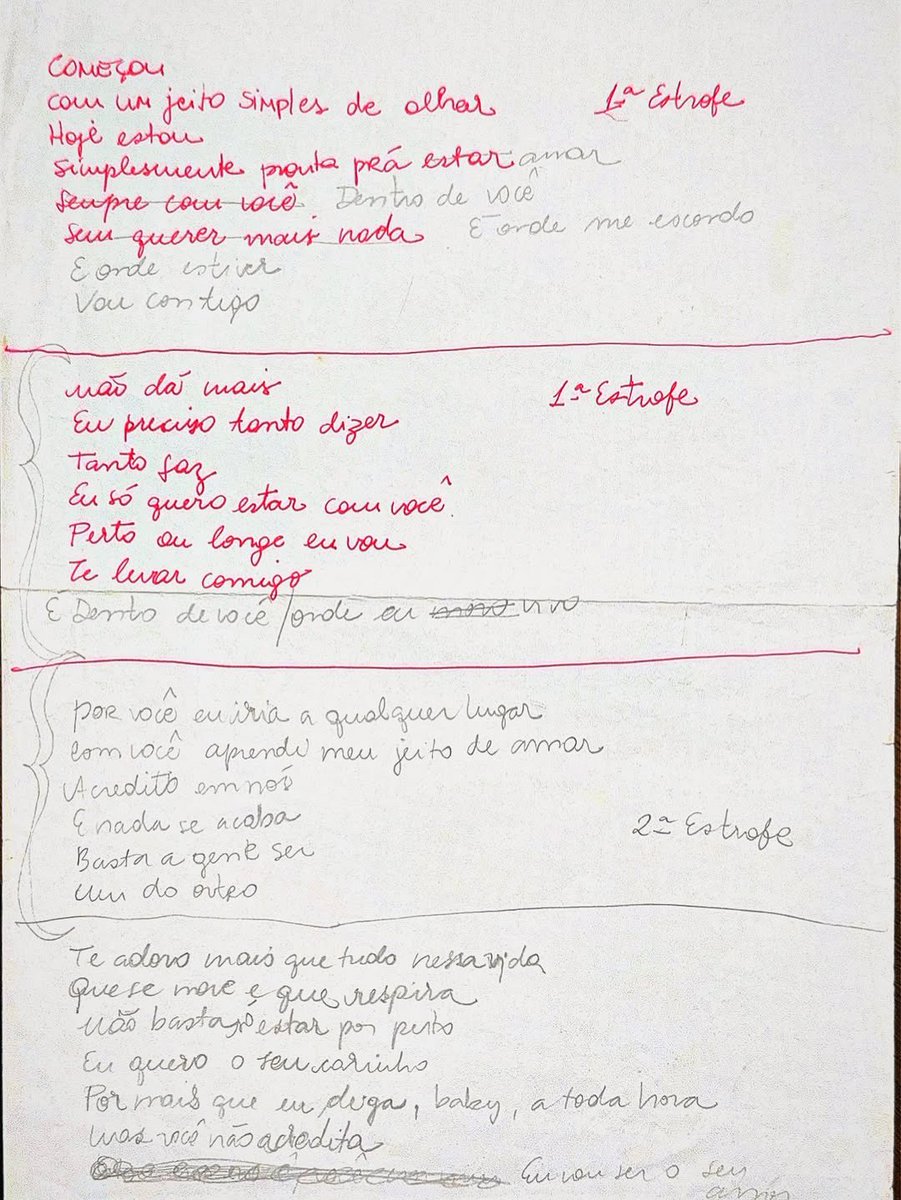 COMEÇOU
com um jeito simples de olhar 1ª Estrofe
Hoje estou
simplesmente pronta prá estar amar
sempre com você Dentro de você
sem querer mais nada E onde me escondo
E onde estiver
Vou contigo
Não dá mais 1ª Estrofe
Eu preciso tanto dizer
Tanto faz
Eu só quero estar com você
Perto ou longe eu vou
Te levar comigo
É Dentro de você / onde eu vivo
por você eu iria a qualquer lugar
com você aprendi meu jeito de amar
Acredito em nós
E nada se acaba
2ª Estrofe
Basta a gente ser
um do outro
Te adoro mais que tudo nessa vida
Que se move e que respira
não basta só estar por perto
Eu quero o seu carinho
Por mais que eu diga, baby, a toda hora
mas você não acredita
Eu vou ser o seu
amor